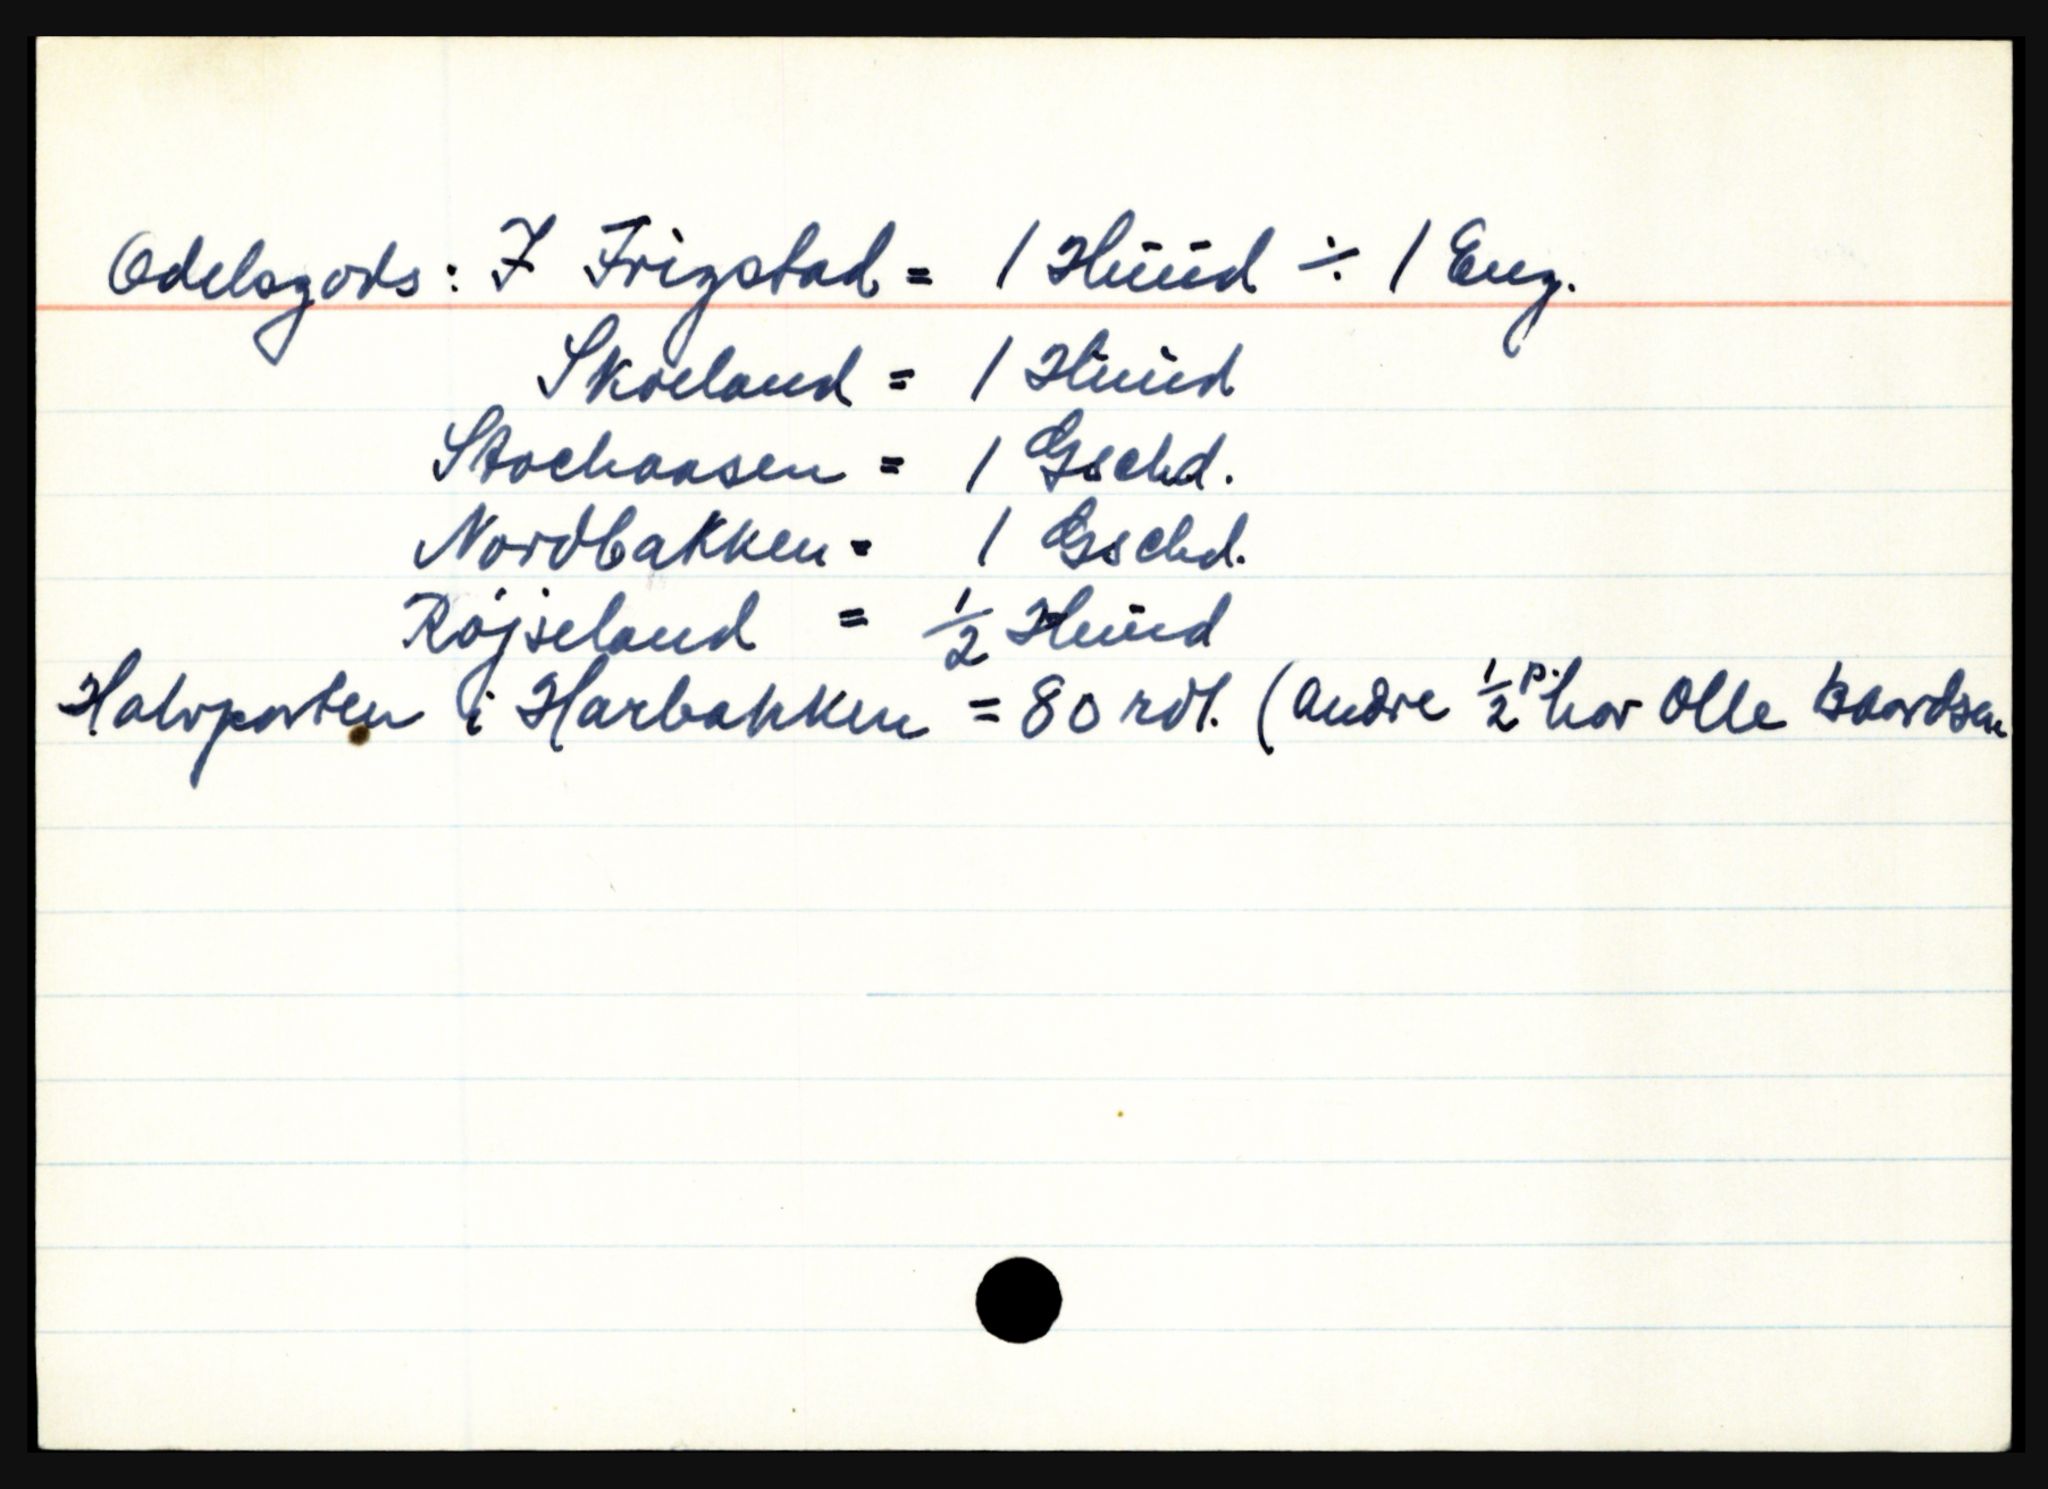 Odelsgods: I Frigstad = 1 Hüüd ÷ 1 Eng.
Skoeland = 1 Hüüd
Stochaasen = 1 Gschd.
Nordbakken = 1 Gschd.
Røjseland = ½ Hüüd
Halvparten i Harbakken = 80 rdl. (andre ½ p. har Olle Baardsen